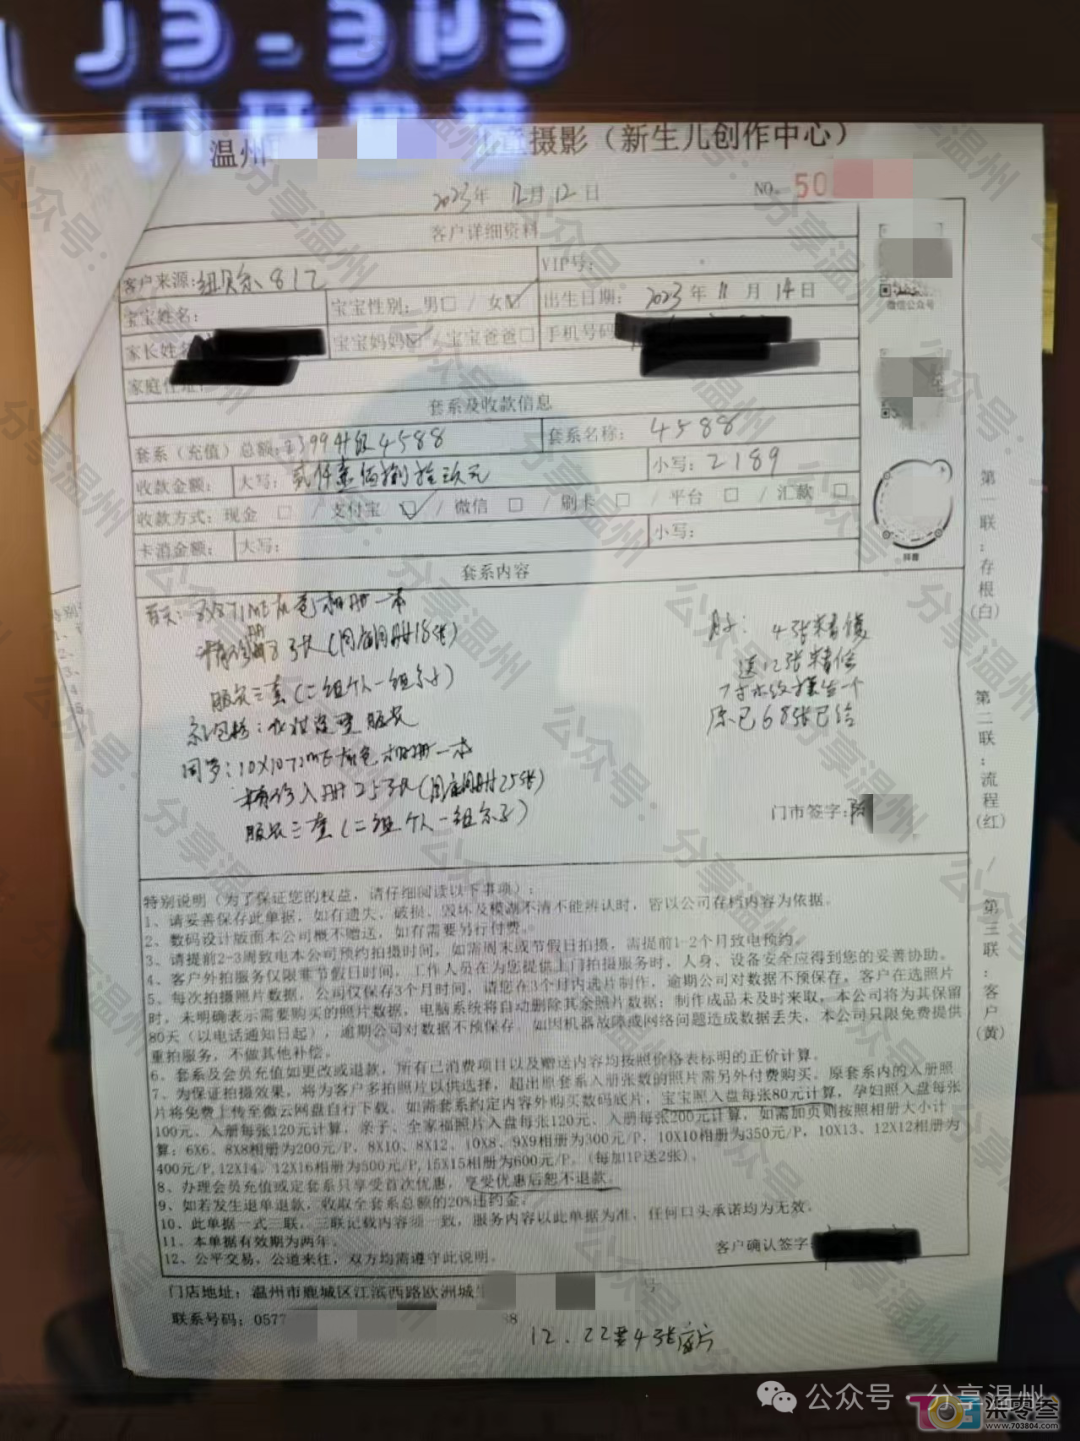 温州
童摄影（新生儿创作中心）
2023年 12月12日
NO. 50
客户详细资料
客户来源:纽贝尔812
VIP号:
宝宝姓名:
宝宝性别: 男□ / 女☑
出生日期: 2023年11月14日
家长姓名
宝宝妈妈☑ / 宝宝爸爸□
手机号码
家庭住址:
套系及收款信息
套系（充值）总额:2399升级4588
套系名称: 4588
收款金额:
大写: 贰仟壹佰捌拾玖元
小写: 2189
收款方式: 现金 □ / 支付宝 ☑ / 微信 □ / 刷卡 □ / 平台 □ / 汇款 □
卡消金额:
大写:
小写:
套系内容
相册一本
(同底同册18张)
服装三套(二组个人一组亲子)
服装
相册一本
精修入册25张(同底同册25张)
服装三套(二组个人一组亲子)
4张精修
送12张精修
原已68张已给
门市签字:
特别说明（为了保证您的权益，请仔细阅读以下事项）:
1、请妥善保存此单据，如有遗失、破损、毁坏及模糊不清不能辨认时，皆以公司存档内容为依据。
2、数码设计版面本公司概不赠送，如有需要另行付费。
3、请提前2-3周致电本公司预约拍摄时间，如需周末或节假日拍摄，需提前1-2个月致电预约。
4、客户外拍服务仅限非节假日时间，工作人员在为您提供上门拍摄服务时，人身、设备安全应得到您的妥善协助。
5、每次拍摄照片数据，公司仅保存3个月时间，请您在3个月内选片制作，逾期公司对数据不预保存。客户在选照片
时，未明确表示需要购买的照片数据，电脑系统将自动删除其余照片数据；制作成品未及时来取，本公司将为其保留
80天（以电话通知日起），逾期公司对数据不预保存。如因机器故障或网络问题造成数据丢失，本公司只限免费提供
重拍服务，不做其他补偿。
6、套系及会员充值如更改或退款，所有已消费项目以及赠送内容均按照价格表标明的正价计算。
7、为保证拍摄效果，将为客户多拍照片以供选择，超出原套系入册张数的照片需另外付费购买。原套系内的入册照
片将免费上传至微云网盘自行下载，如需套系约定内容外购买数码底片，宝宝照入盘每张80元计算，孕妇照入盘每张
100元、入册每张120元计算，亲子、全家福照片入盘每张120元、入册每张200元计算，如需加页则按照相册大小计
算：6X6、8X8相册为200元/P，8X10、8X12、10X8、9X9相册为300元/P，10X10相册为350元/P，10X13、12X12相册为
400元/P,12X14、12X16相册为500元/P,15X15相册为600元/P。（每加1P送2张）。
8、办理会员充值或定套系只享受首次优惠，享受优惠后恕不退款。
9、如若发生退单退款，收取全套系总额的20%违约金。
10、此单据一式三联，三联记载内容须一致，服务内容以此单据为准，任何口头承诺均为无效。
11、本单据有效期为两年。
12、公平交易，公道来往，双方均需遵守此说明。
客户确认签字
门店地址: 温州市鹿城区江滨西路欧洲城
号
联系号码: 0577
8
12.22要4张底片
微信公众号
抖音
第一联：存根（白）
第二联：流程（红）
/
第三联：客户（黄）
公众号：分享温州
公众号 · 分享温州
703
柒零叁
www.703804.com